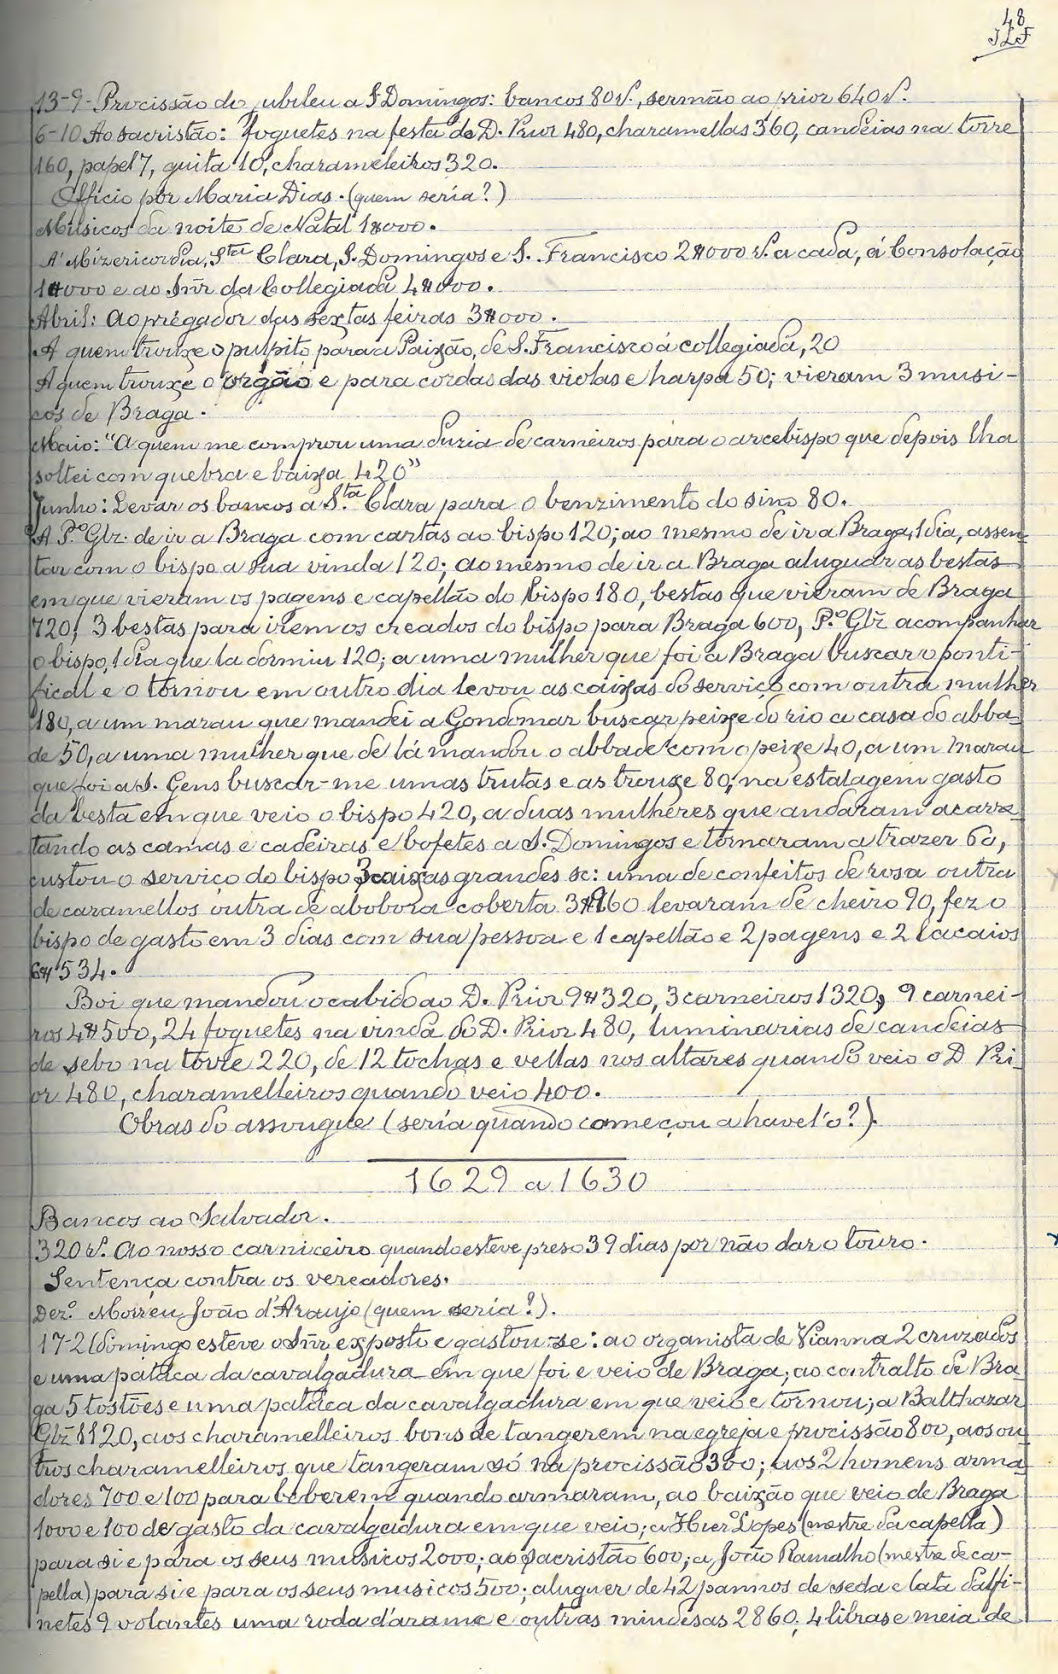 48
JLF
13-9- Procissão do jubileu a S Domingos: bancos 80 rs., sermão ao prior 640 rs.
6-10. Ao sacristão: foguetes na festa do D. Prior 480, charamellas 360, candeias na torre
160, papel 7, guita 10, charameleiros 320.
Officio por Maria Dias. (quem seria?)
Musicos da noite de Natal 1$000.
A' Mizericordia, Sta Clara, S. Domingos e S. Francisco 2$000 rs. a cada, á Consolação
1$000 e ao Snr da Collegiada 4$000.
Abril: ao prégador das sextas feiras 3$000.
A quem trouxe o pulpito para a Paixão, de S. Francisco á collegiada, 20
A quem trouxe o orgão e para cordas das violas e harpa 50; vieram 3 musi-
cos de Braga.
Maio: "A quem me comprou uma duzia de carneiros para o arcebispo que depois lha
soltei com quebra e baixa 420"
Junho: Levar os bancos a S.ta Clara para o benzimento do sino 80.
A P.o Glz. de ir a Braga com cartas ao bispo 120; ao mesmo de ir a Braga, 1 dia, assen-
tar com o bispo a sua vinda 120; ao mesmo de ir a Braga aluguar as bestas
em que vieram os pagens e capellão do bispo 180, bestas que vieram de Braga
720, 3 bestas para irem os creados do bispo para Braga 600, P.o Glz acompanhar
o bispo, 1 dia que la dormiu 120; a uma mulher que foi a Braga buscar o ponti-
fical e o tornou em outro dia levou as caixas do serviço com outra mulher
180, a um marau que mandei a Gondomar buscar peixe do rio a casa do abba-
de 50, a uma mulher que de lá mandou o abbade com o peixe 40, a um marau
que foi a S. Gens buscar-me umas trutas e as trouxe 80, na estalagem gasto
da besta em que veio o bispo 420, a duas mulheres que andaram acarre-
tando as camas e cadeiras e bofetes a S. Domingos e tornaram a trazer 60,
custou o serviço do bispo 3 caixas grandes sc: uma de confeitos de rosa outra
de caramellos outra de abobora coberta 3$960 levaram de cheiro 90, fez o
bispo de gasto em 3 dias com sua pessoa e 1 capellão e 2 pagens e 2 lacaios
6$534.
Boi que mandou o cabido ao D. Prior 9$320, 3 carneiros 1320, 9 carnei-
ros 4$500, 24 foguetes na vinda do D. Prior 480, luminarias de candeias
de sebo na torre 220, de 12 tochas e vellas nos altares quando veio o D Pri-
or 480, charamelleiros quando veio 400.
Obras do assougue (seria quando começou a havel'o?).
1629 a 1630
Bancos ao Salvador.
320 rs. ao nosso carniceiro quando esteve preso 39 dias por não dar o touro.
Sentença contra os vereadores.
Dez.o Morreu João d'Araujo (quem seria?).
17-2 (domingo esteve o Snr exposto e gastou-se: ao organista de Vianna 2 cruzados
e uma pataca da cavalgadura em que foi e veio de Braga; ao contralto de Bra
ga 5 tostões e uma pataca da cavalgadura em que veio e tornou; a Balthazar
Glz 1120, aos charamelleiros bons de tangerem na egreja e procissão 800, aos ou-
tros charamelleiros que tangeram só na procissão 300; aos 2 homens arma-
dores 700 e 100 para beberem quando armaram, ao baixão que veio de Braga
1000 e 100 de gasto da cavalgadura em que veio; a Hier.o Lopes (mestre da capella)
para si e para os seus musicos 2000; ao sacristão 600; a João Ramalho (mestre de ca-
pella) para si e para os seus musicos 500; aluguer de 42 pannos de seda e lata d'alfi-
netes 9 volantes uma roda d'arame e outras mindesas 2860; 4 libras e meia de